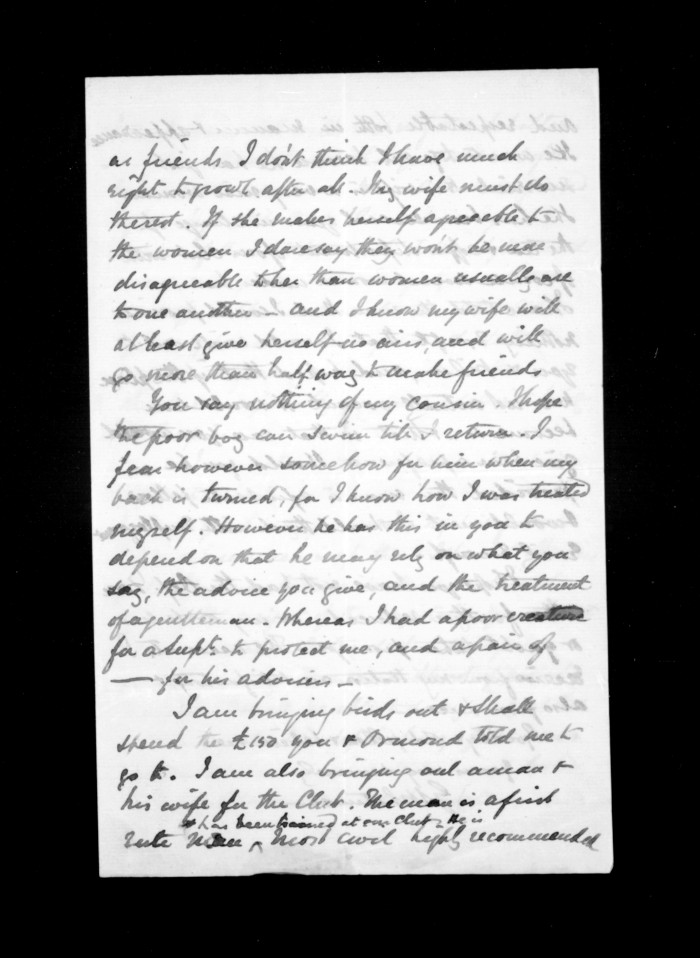 as friends I don't think I have much
right to growl after all. My wife must do
the rest. If she makes herself agreeable to
the women I daresay they won't be more
disagreeable to her than women usually are
to one another – and I know my wife will
at least give herself no airs, and will
go more than half way to make friends
You say nothing of my cousin. I hope
the poor boy can swim till I return. I
fear however somehow for him when my
back is turned, for I know how I was treated
myself. However he has this in you to
depend on that he may rely on what you
say, the advice you give, and the treatment
of a gentleman. Whereas I had a poor creature
for a Supt. to protect me, and a pair of
— for his advisers –
I am bringing birds out & shall
spend the £150 you & Ormond told me to
go to. I am also bringing out a man &
his wife for the Club. The man is a first
& has been trained at one Club – He is
rate man, most civil highly recommended